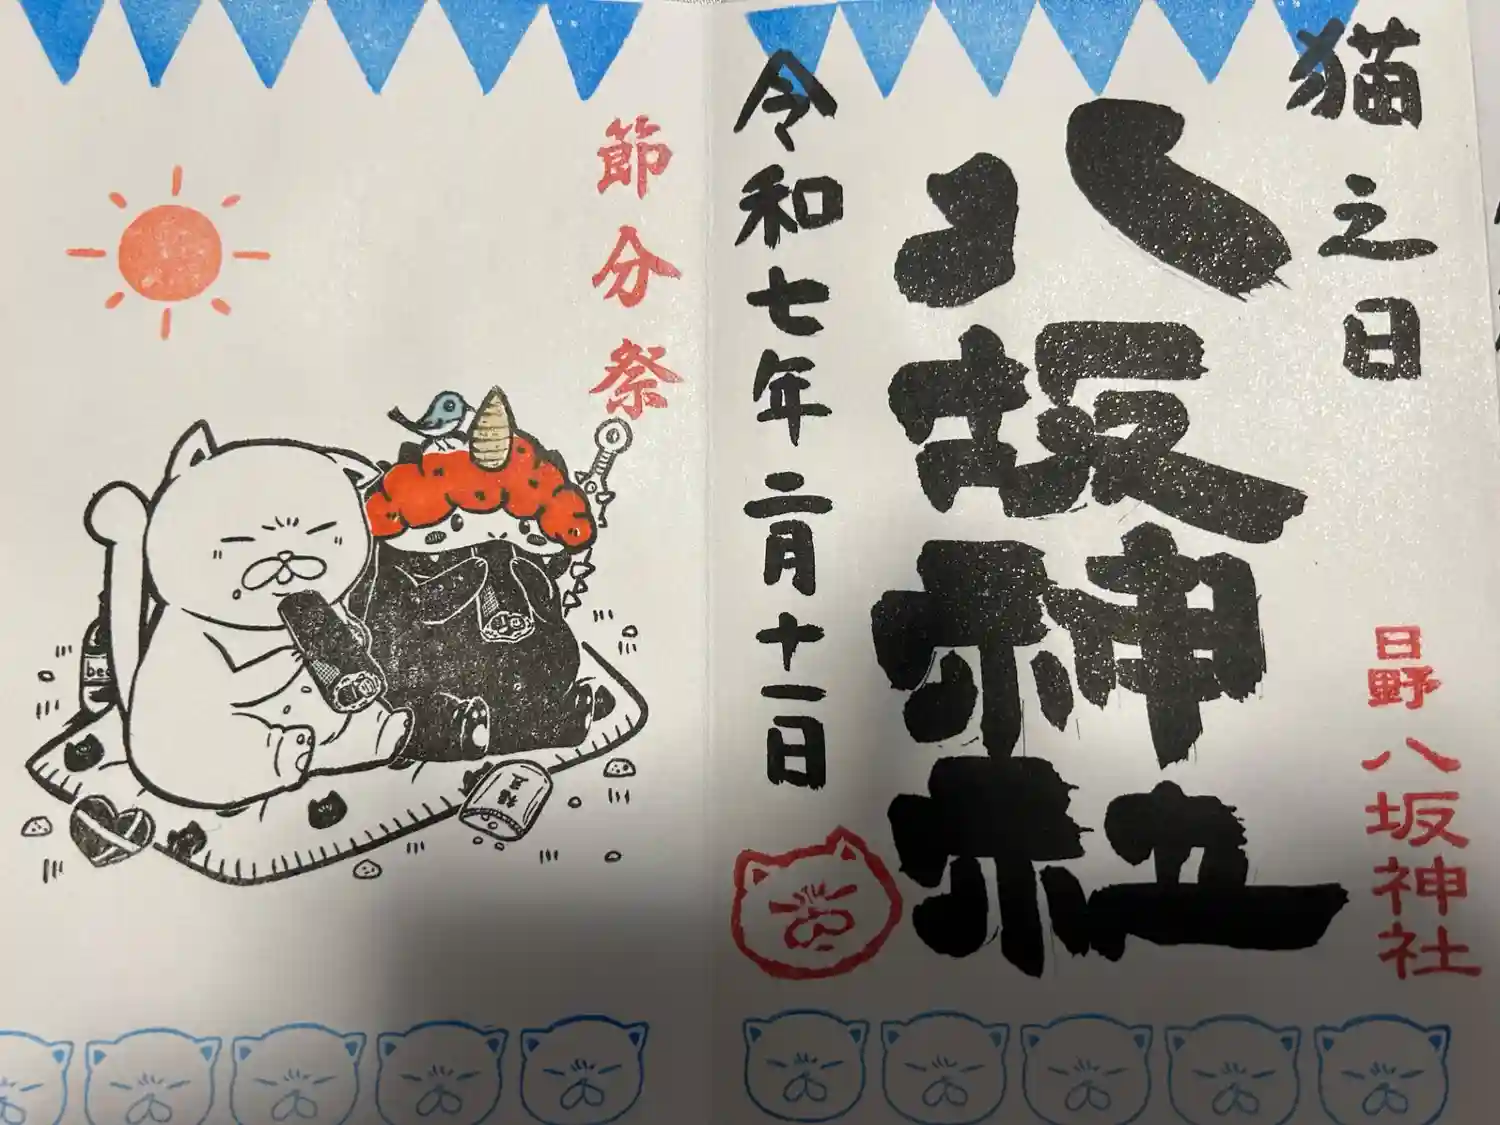 猫之日
八坂神社
日野八坂神社
令和七年二月十一日
節分祭
bee
福豆